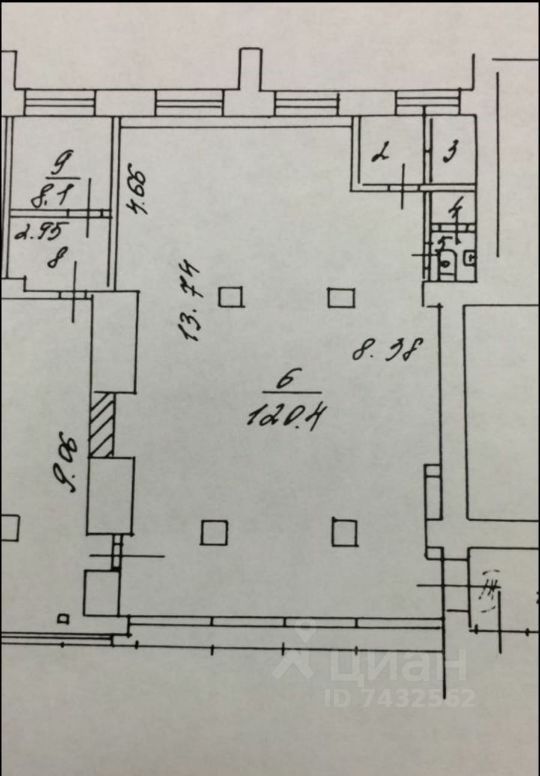 9
8.1
2.95
8
4.66
2
3
4
5
13.74
8.38
6
120.4
9.06
циан
ID 7432562